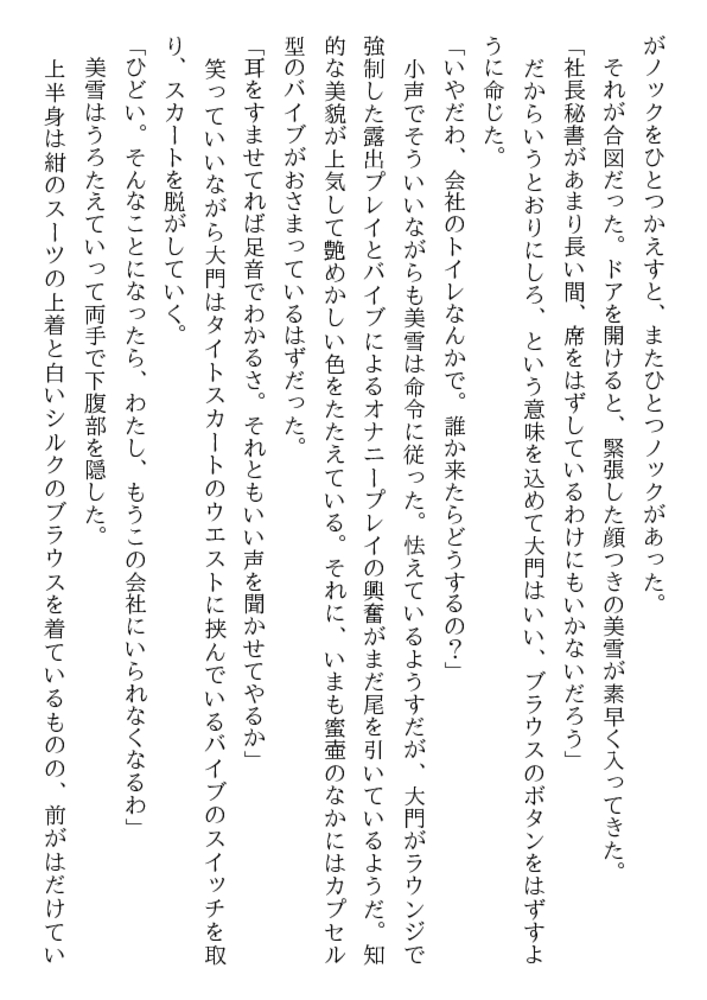 がノックをひとつかえすと、またひとつノックがあった。
　それが合図だった。ドアを開けると、緊張した顔つきの美雪が素早く入ってきた。
「社長秘書があまり長い間、席をはずしているわけにもいかないだろう」
　だからいうとおりにしろ、という意味を込めて大門はいい、ブラウスのボタンをはずすよ
うに命じた。
「いやだわ、会社のトイレなんかで。誰か来たらどうするの？」
　小声でそういいながらも美雪は命令に従った。怯えているようすだが、大門がラウンジで
強制した露出プレイとバイブによるオナニープレイの興奮がまだ尾を引いているようだ。知
的な美貌が上気して艶めかしい色をたたえている。それに、いまも蜜壺のなかにはカプセル
型のバイブがおさまっているはずだった。
「耳をすませてれば足音でわかるさ。それともいい声を聞かせてやるか」
　笑っていいながら大門はタイトスカートのウエストに挟んでいるバイブのスイッチを取
り、スカートを脱がしていく。
「ひどい。そんなことになったら、わたし、もうこの会社にいられなくなるわ」
　美雪はうろたえていって両手で下腹部を隠した。
　上半身は紺のスーツの上着と白いシルクのブラウスを着ているものの、前がはだけてい